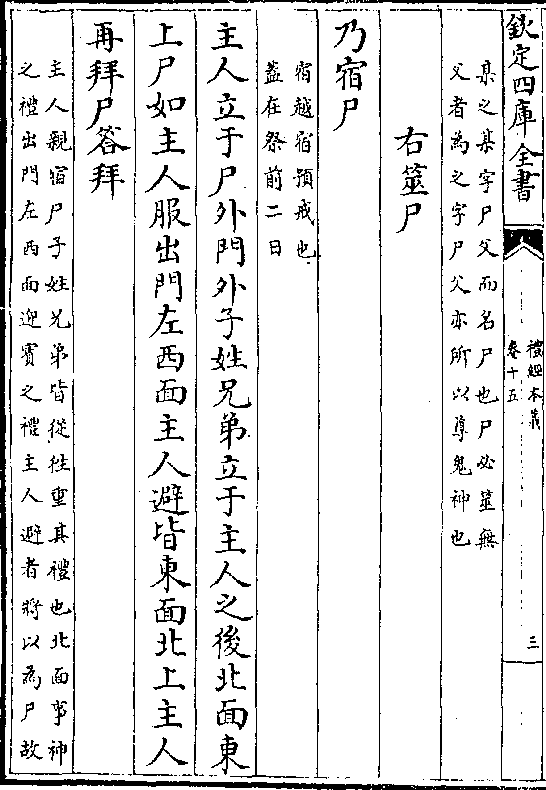 欽定四庫全書
禮經本義
卷十五
三
某之某字尸父而名尸也尸必筮無
父者為之字尸父亦所以尊鬼神也
右筮尸
乃宿尸
宿越宿預戒也
蓋在祭前二日
主人立于尸外門外子姓兄弟立于主人之後北面東
上尸如主人服出門左西面主人避皆東面北上主人
再拜尸答拜
主人親宿尸子姓兄弟皆從往重其禮也北面事神
之禮出門左西面迎賓之禮主人避者將以為尸故